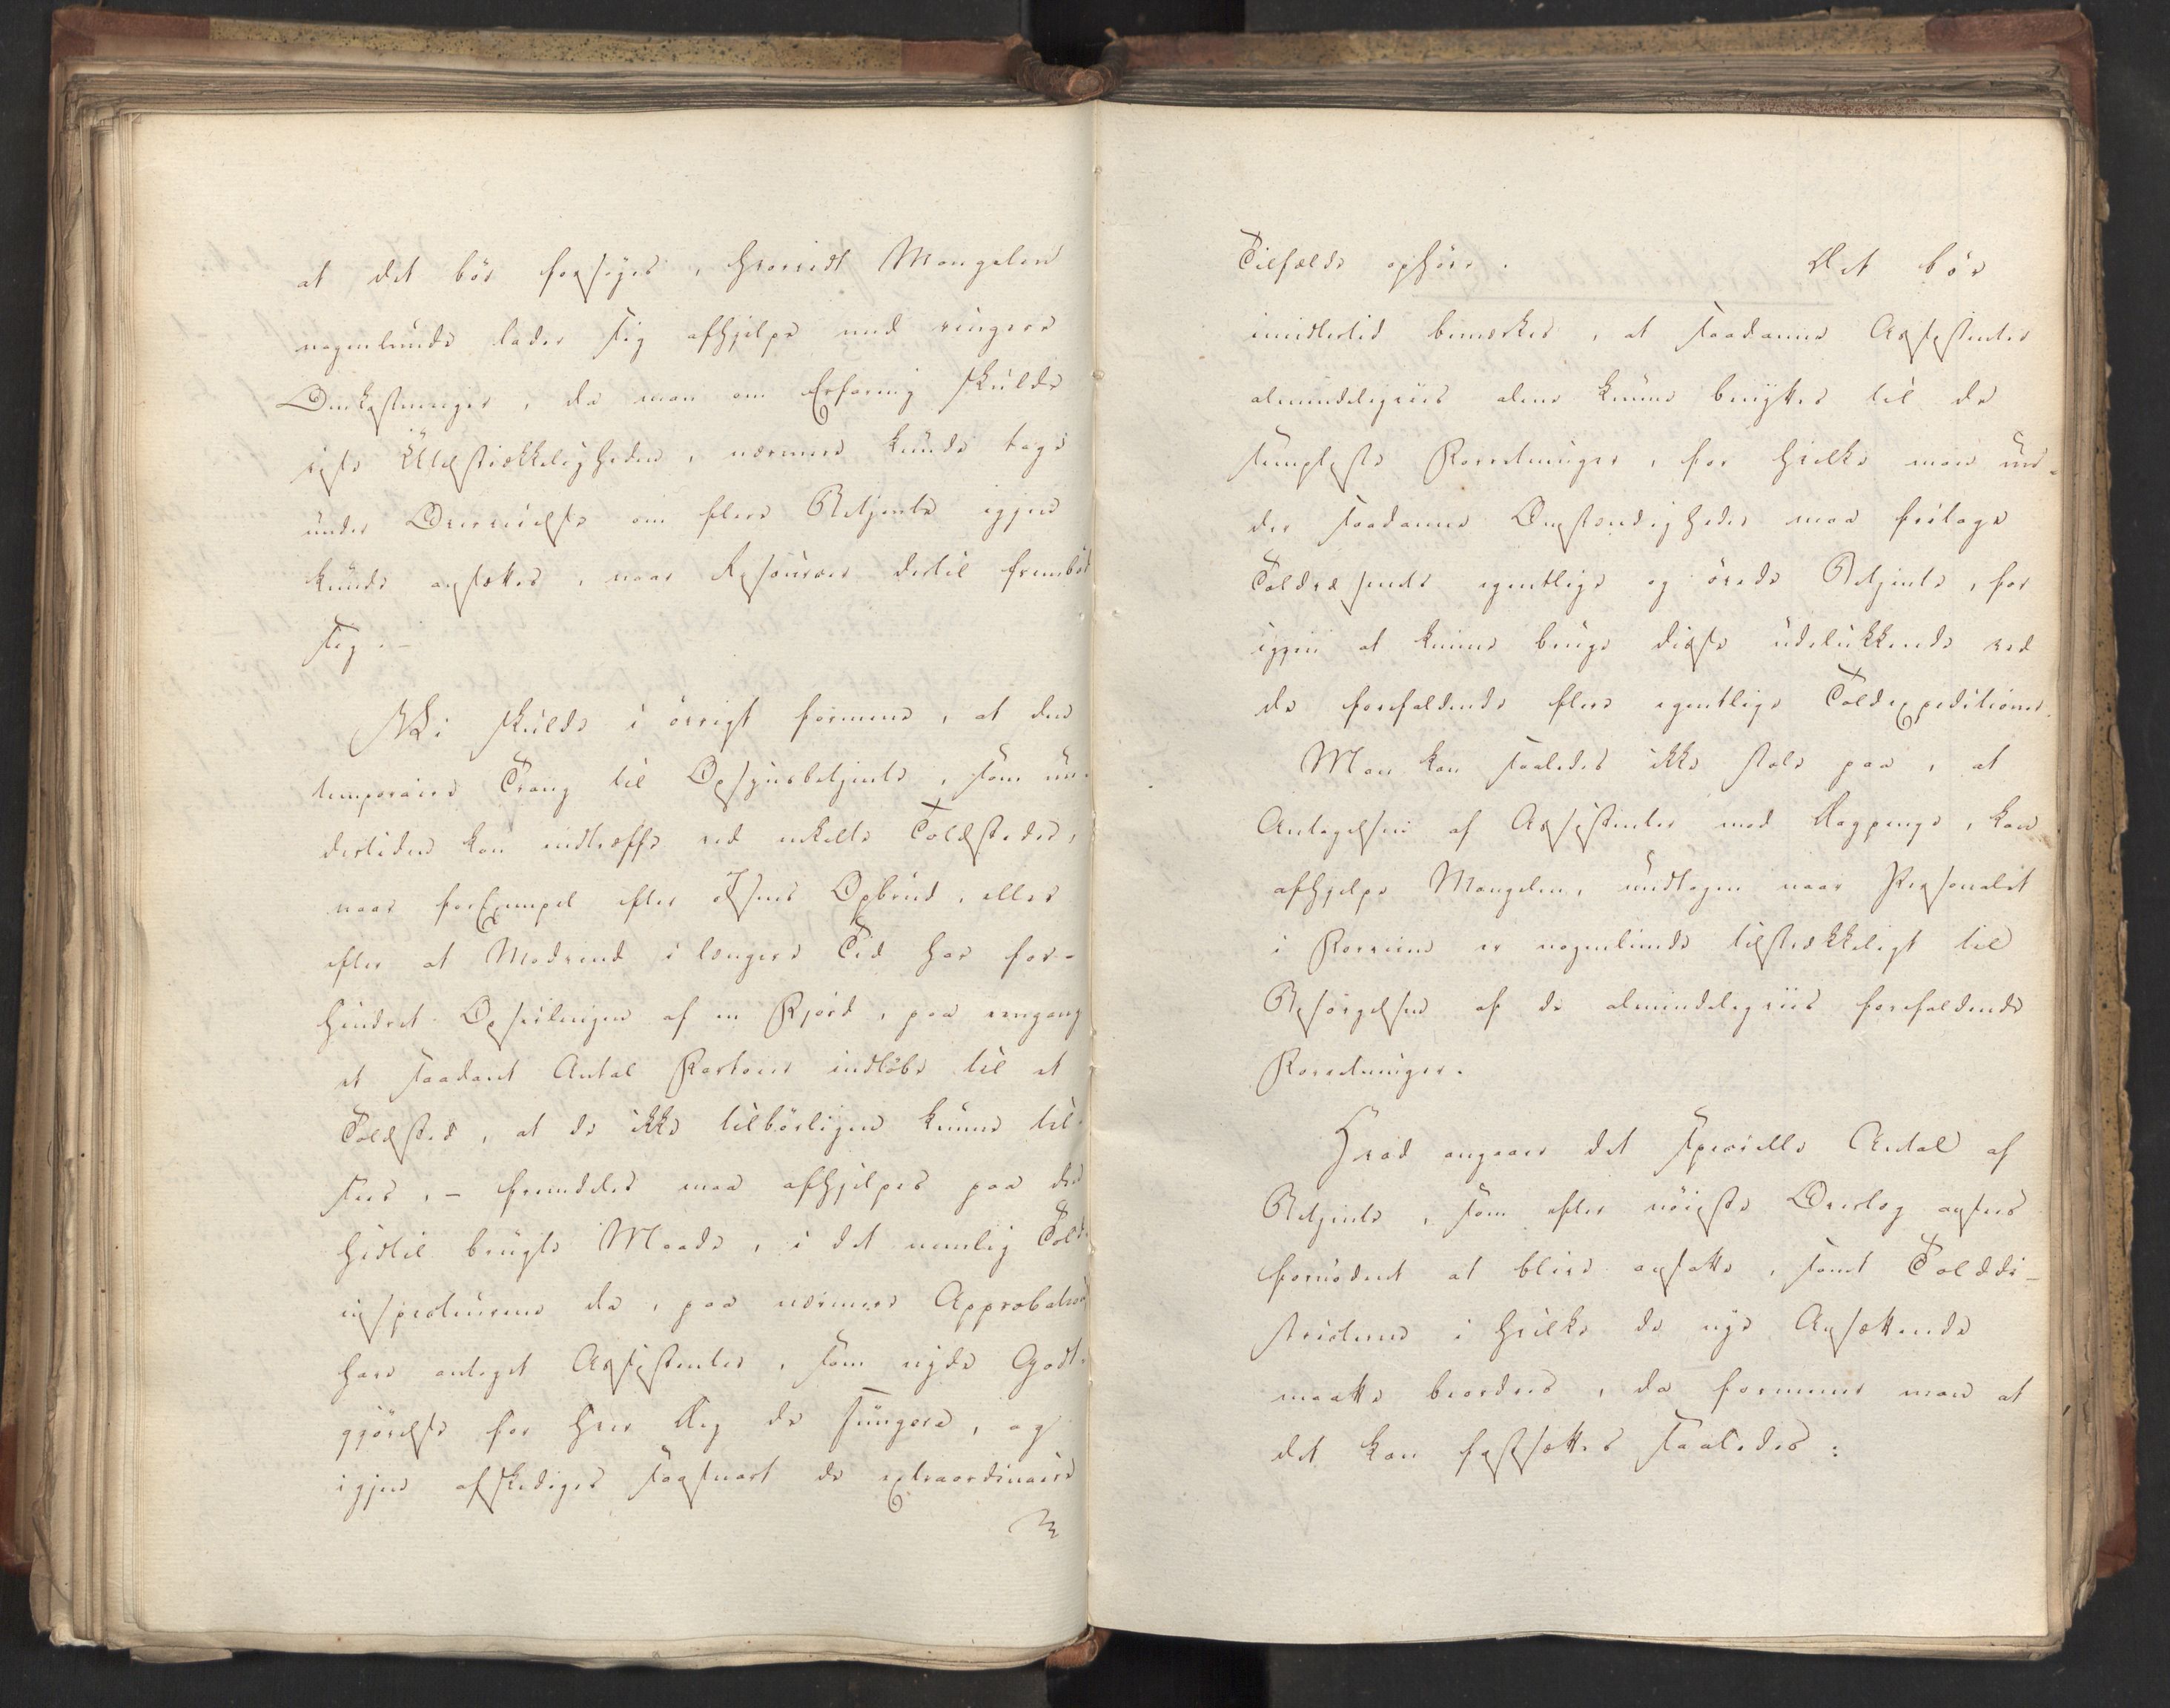 at det bör forsöges, hvorvidt Mangelen
nogenlunde lader sig afhjelpe med ringere
Omkostninger, da man om Erfaring skulde
vise Utilstrækkeligheden, nærmere kunde tage
under Overveielse om flere Betjente igjen
kunde ansættes, naar Resourcer dertil frembød
sig. –
Vi skulde i övrigt formene, at den
temporaire Trang til Opsynsbetjente, som un-
dertiden kan indtræffe ved enkelte Toldsteder,
naar for Exempel efter Isens Opbrud, eller
efter at Modvind i længere Tid har for-
hindret Opseilingen af en Fjord, paa engang
et saadant Antal Fartöier indlöbe til et
Toldsted, at de ikke tilbörligen kunne til-
sees, – fremdeles maa afhjelpes paa den
hidtil brugte Maade, i det nemlig Told-
inspecteurerne da, paa nærmere Approbation
have antaget Assistenter, som nyde Godt-
gjörelse for hver Dag de fungere, og
igjen afskediges saasnart de extraordinaire
Tilfælde ophöre. Det bör
imidlertid bemærkes, at saadanne Assistenter
almindeligviis alene kunne benyttes til de
simpleste Forretninger, for hvilke man un-
der saadanne Omstændigheder maa fritage
Toldvæsenets egentlige og övede Betjente, for
igjen at kunne bruge disse udelukkende ved
de forefaldende flere egentlige Toldexpeditioner.
Man kan saaledes ikke stole paa, at
Antagelsen af Assistenter mod Dagpenge, kan
afhjelpe Mangelen, undtagen naar Personalet
i Forveien er nogenlunde tilstrækkeligt til
Besörgelsen af de almindeligviis forefaldende
Forretninger.
Hvad angaaer det specielle Antal af
Betjente, som efter nöieste Overlæg ansees
fornödent at blive ansatte, samt Tolddi-
stricterne i hvilke de nye Ansættende
maatte beordres, da formener man at
det kan fastsættes saaledes: